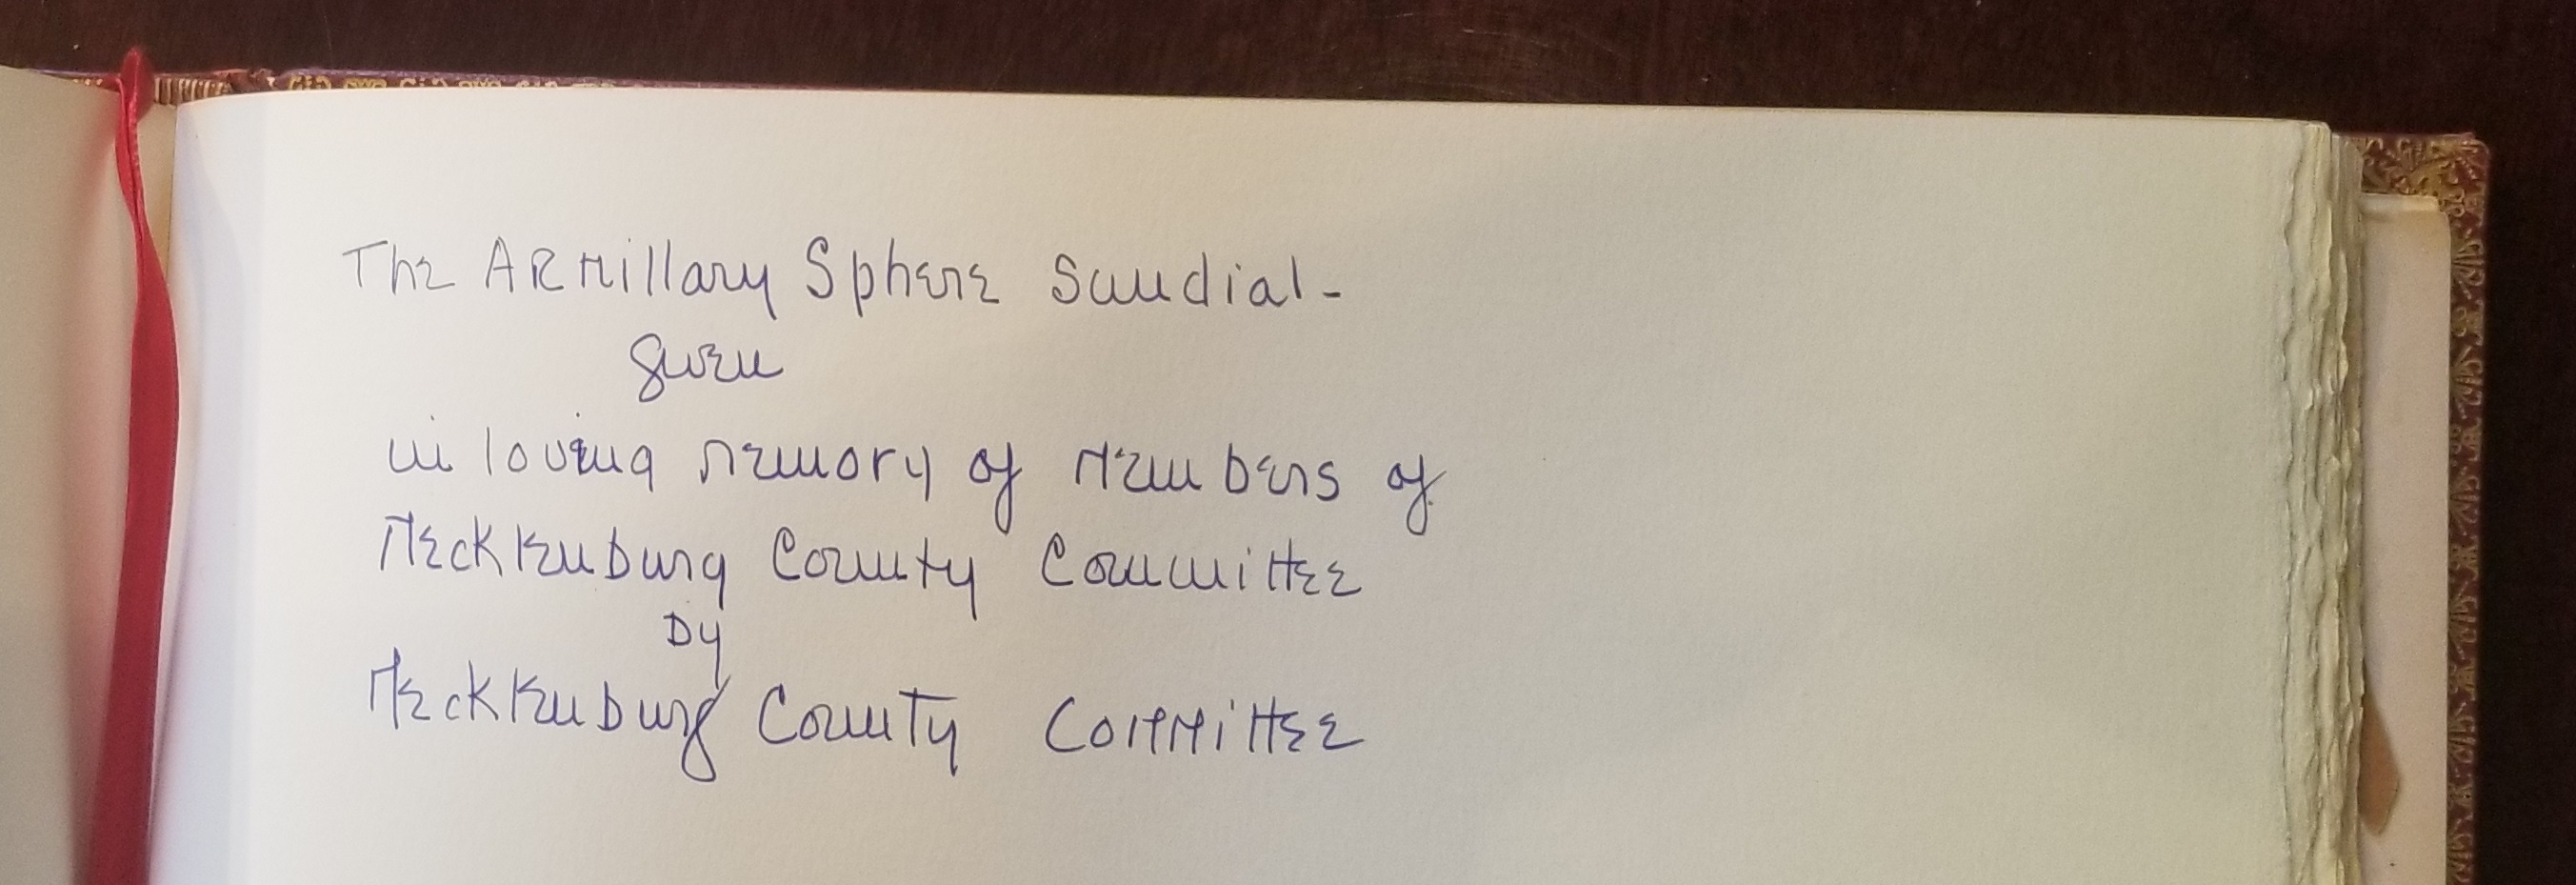 The Armillary Sphere Sundial -
given
in loving memory of members of
Mecklenburg County Committee
by
Mecklenburg County Committee